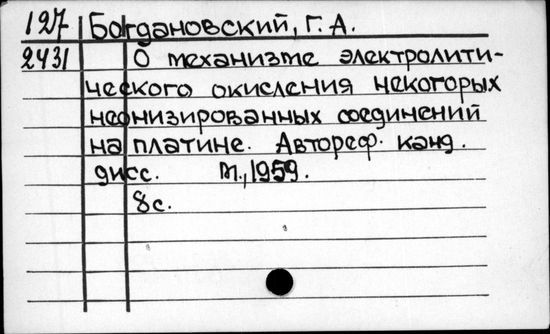 127 Богдановский, Г. А.
2431 О механизме электролити-
ческого окисления некоторых
неонизированных соединений
на платине. Автореф. канд.
дисс. М., 1959.
8с.